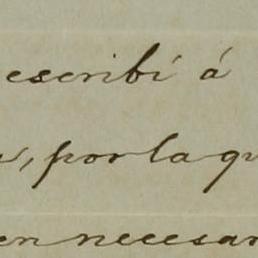 escribí á
, por la qu
en necesar